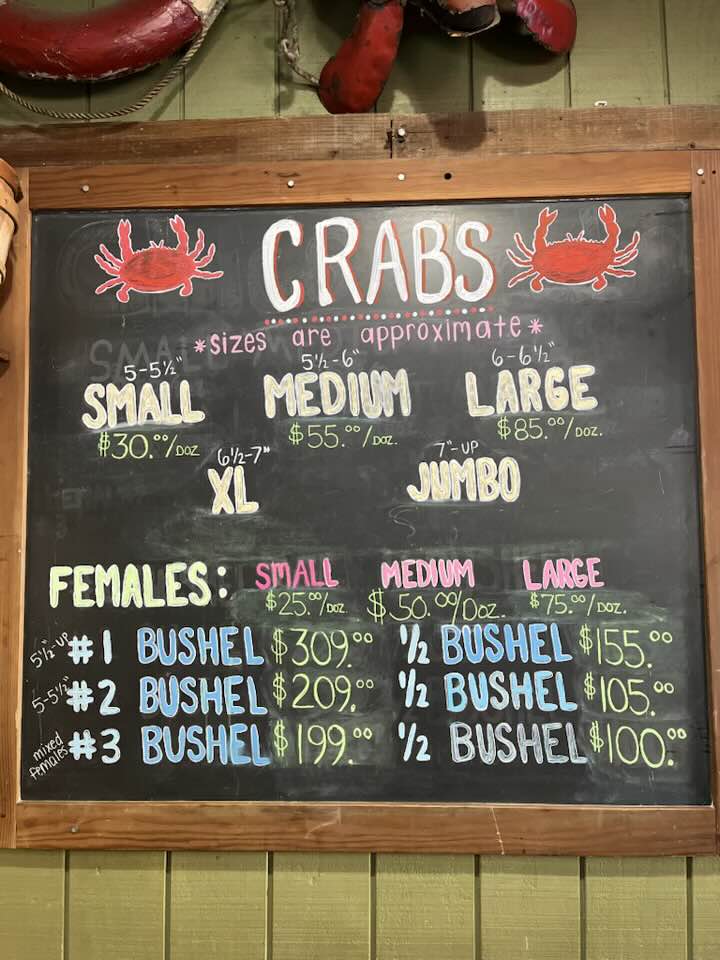 CRABS
*sizes are approximate*
5-5½" 5½-6" 6-6½"
SMALL MEDIUM LARGE
$30.⁰⁰/DOZ $55.⁰⁰/DOZ. $85.⁰⁰/DOZ.
6½-7" 7"-UP
XL JUMBO
FEMALES: SMALL MEDIUM LARGE
$25.⁰⁰/DOZ. $50.⁰⁰/DOZ. $75.⁰⁰/DOZ.
5½"-UP #1 BUSHEL $309.⁰⁰ ½ BUSHEL $155.⁰⁰
5-5½" #2 BUSHEL $209.⁰⁰ ½ BUSHEL $105.⁰⁰
mixed females #3 BUSHEL $199.⁰⁰ ½ BUSHEL $100.⁰⁰